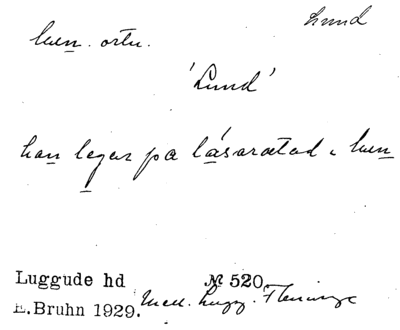 Lund
luen. ortn.
'Lund'
han legar pa lásaratad i luen
Luggude hd № 520
E.Bruhn 1929. Medd. Lugg. Fleninge